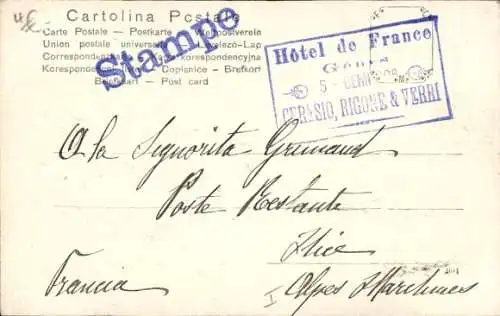 Cartolina Postale
Carte Postale - Postkarte - Weltpostverein
Union postale universelle - Levelező-Lap
Correspondenzkarte - korespondencyjna
Korespondenční - Dopisnice - Brefkort
Briefkaart - Post card
Stampe
Hôtel de France
Gênes
5 -
CERESIO, RIGONE & VERRI
A la Signorita Grimaud
Poste Restante
Nice
Francia
Alpes Maritimes